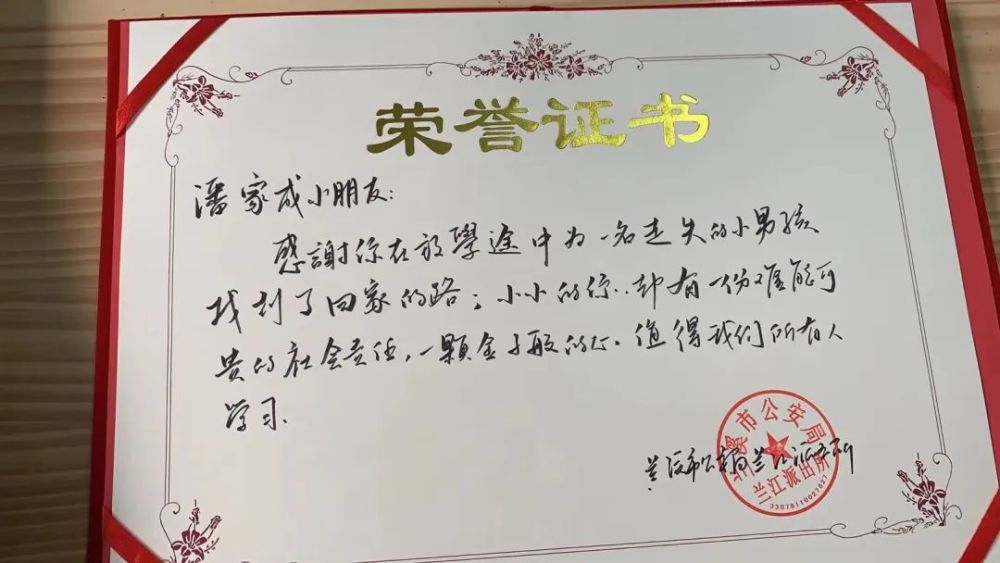 荣誉证书
潘家成小朋友：
感謝你在放學途中为一名走失的小男孩
找到了回家的路；小小的你，却有一份难能可
贵的社会责任，一颗金子般的心。值得我们所有人
学习.
兰溪市公安局兰江派出所
兰溪市公安局
兰江派出所